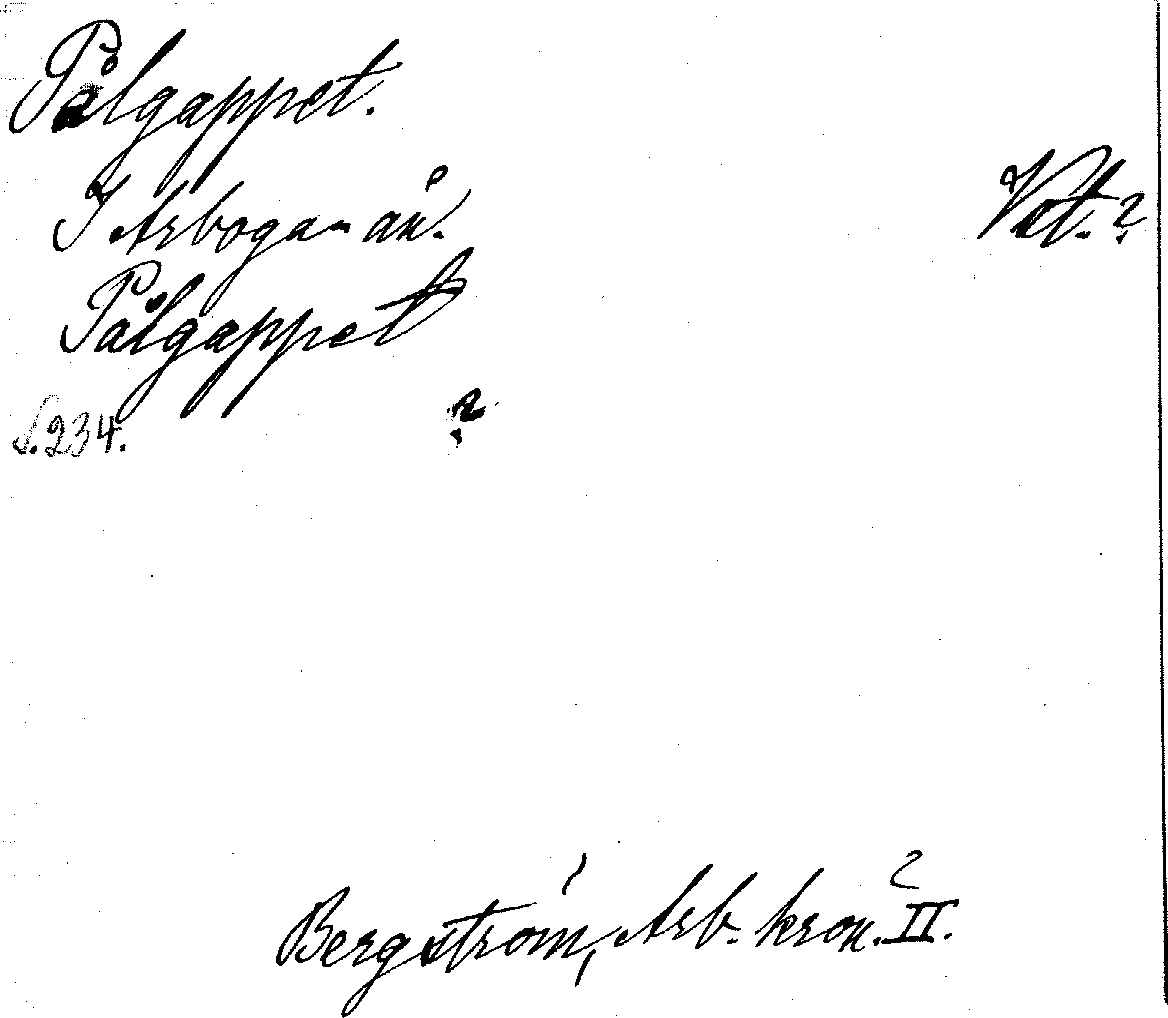 Pålgappet.
I Arbogaån. Vst.?
Pålgappet
S. 234. ?
Bergström, Arb. krön. II.